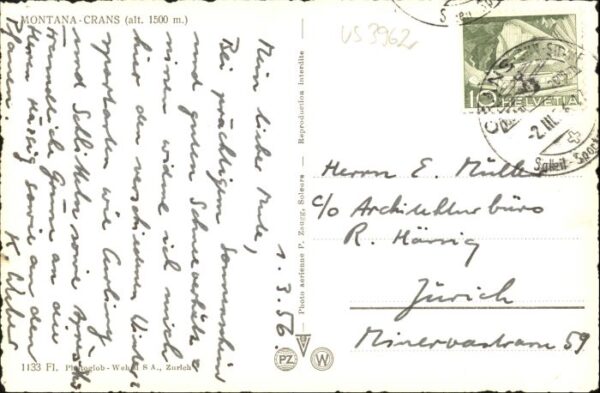 MONTANA-CRANS (alt. 1500 m.)
VS 3962
1.3.56.
Mein lieber
Bei prächtigem Sonnenschein
und guten Schneeverhält-
nissen widme ich mich
hier den verschiedenen Winter-
sportarten wie Curling
und Schlitteln sowie
Freundliche Grüsse an die
Herrn Hässig sowie an den
K. Weber
Photo aerienne P. Zaugg, Soleure - Reproduction interdite
PZ W
1133 Fl. Photoglob-Wehrli S A., Zurich
10 HELVETIA
CRANS SUR
2.III.
Soleil - Sport
Herrn E. Müller
c/o Architekturbüro
R. Hässig
Zürich
Minervastrasse 59.